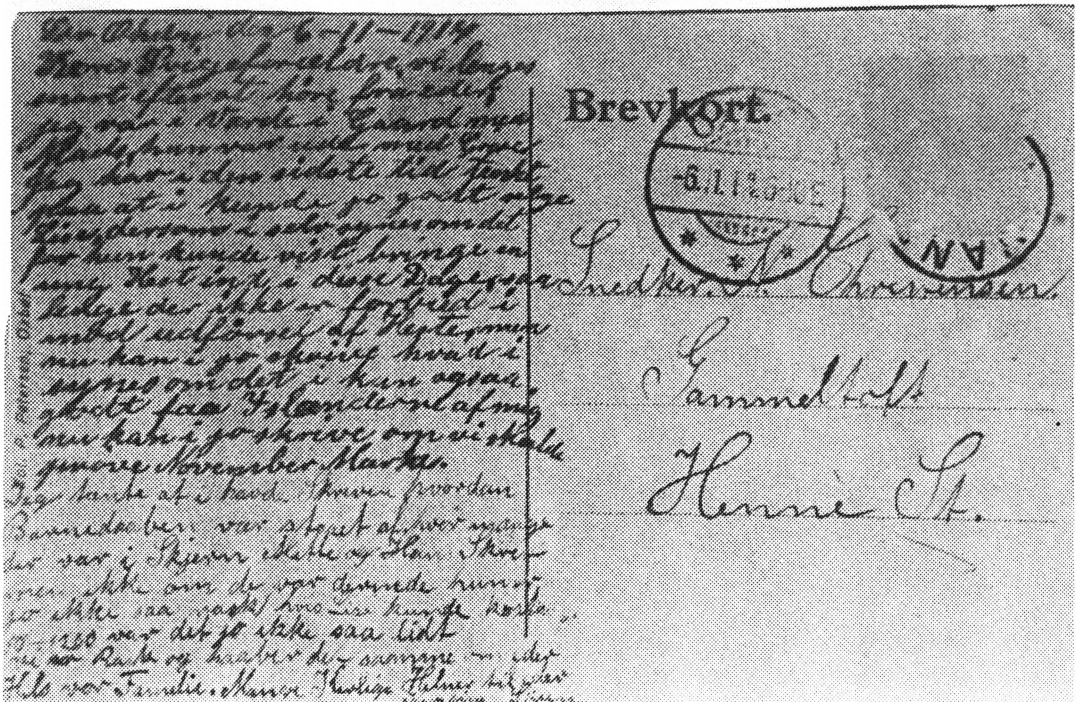 den 6-11-1914
Kæres Svigeforældre, vi længes
snart efter at høre fra eder
jeg var i Varde i Gaard men
Mads, han var ude med
Jeg har i den sidste tid tænkt
paa at i kunde jo godt
dersom i selv synes om det
for hun kunde vist bringe en
ung Hest ind i disse Dage
længe der ikke er forbud i
mod udførsel af Heste men
nu kan i jo skrive hvad i
synes om det i kan ogsaa
godt faa Islænderne af mig
nu kan i jo skrive om vi skulde
prøve November Marked.
Jeg tænte at i havd Skreven hvordan
Barnedaaben var støet af hvor mange
der var i Skjern Mette og Han Skre-
men ikke om de var dernede hun er
jo ikke saa rask, hvis kunde koste
1200 var det jo ikke saa lidt
Rask og haaber det samme om eder
Hils vor Familie. Mange Kerlige Hilsner til
Fot. P. Petersen, Oxbøl
Brevkort.
-6.11.14
RAN
Snedker. N. Christensen.
Gammeltoft
Henne St.